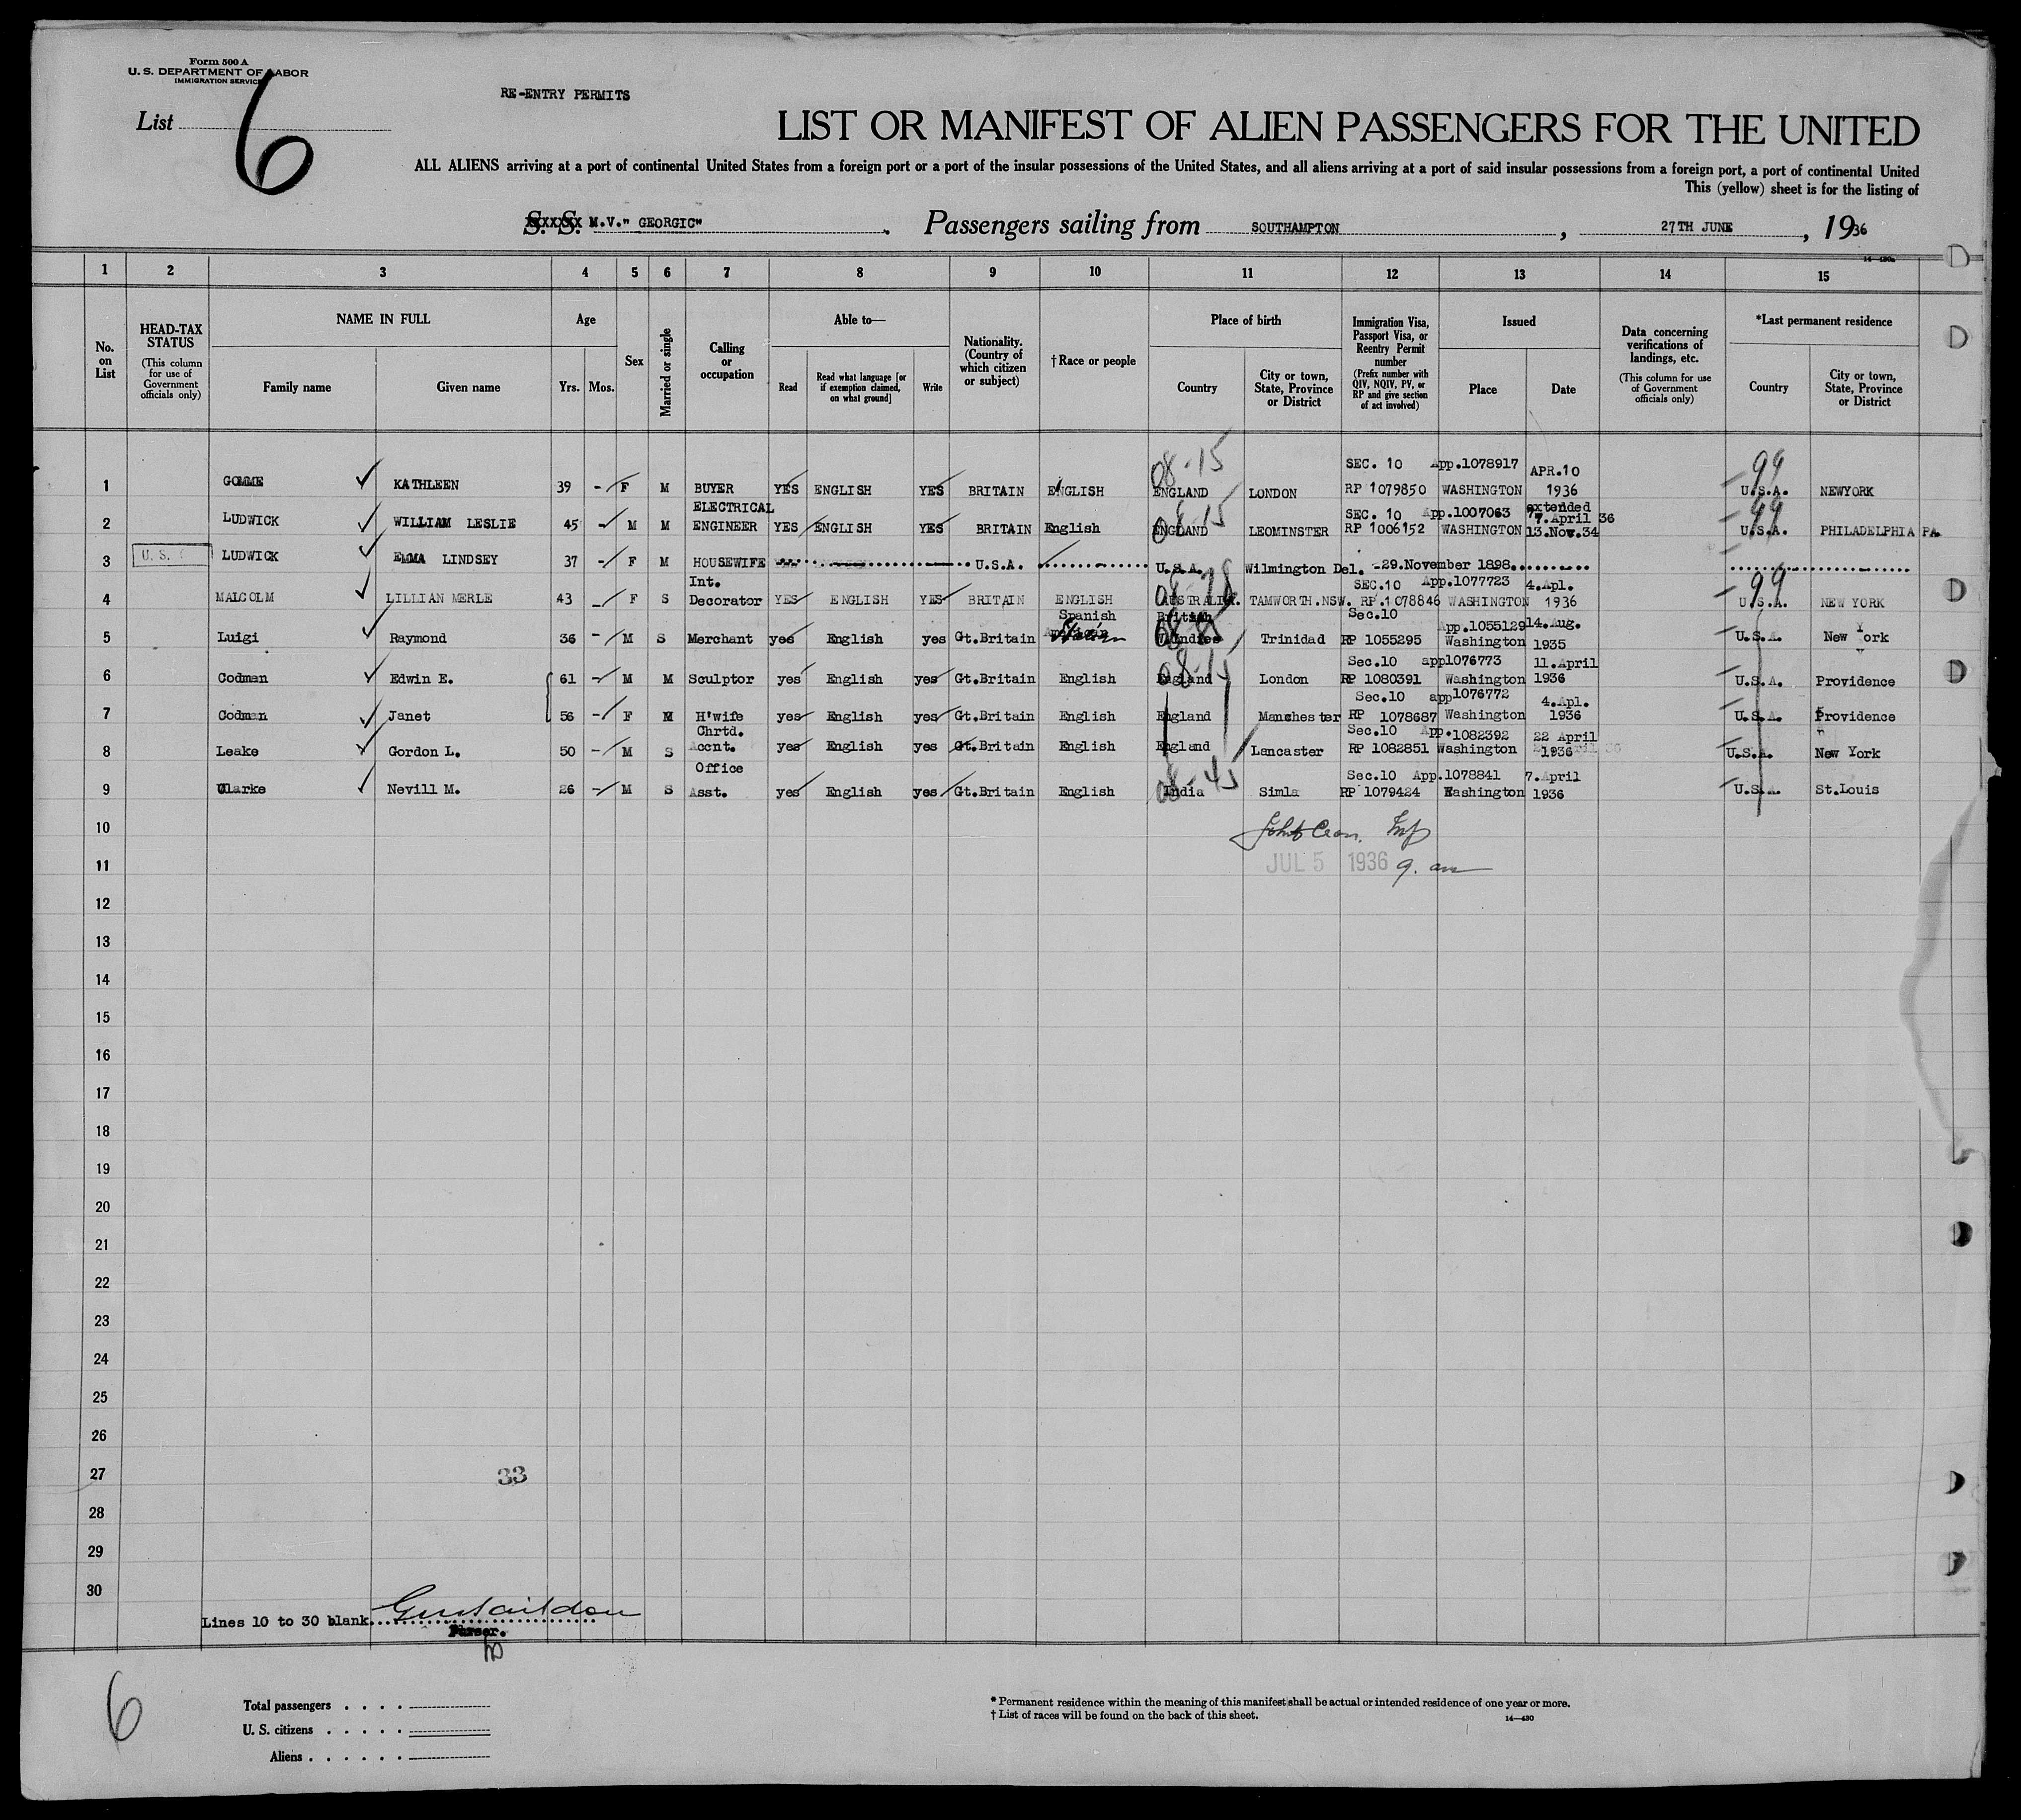 Form 500 A
U. S. DEPARTMENT OF LABOR
IMMIGRATION SERVICE
RE-ENTRY PERMITS
List 6
LIST OR MANIFEST OF ALIEN PASSENGERS FOR THE UNITED
ALL ALIENS arriving at a port of continental United States from a foreign port or a port of the insular possessions of the United States, and all aliens arriving at a port of said insular possessions from a foreign port, a port of continental United
This (yellow) sheet is for the listing of
S. S. M.V." GEORGIC" Passengers sailing from SOUTHAMPTON, 27TH JUNE, 1936
1 2 3 4 5 6 7 8 9 10 11 12 13 14 15
No. on List
HEAD-TAX STATUS
(This column for use of Government officials only)
NAME IN FULL
Family name
Given name
Age
Yrs. Mos.
Sex
Married or single
Calling or occupation
Able to—
Read
Read what language [or if exemption claimed, on what ground]
Write
Nationality. (Country of which citizen or subject)
†Race or people
Place of birth
Country
City or town, State, Province or District
Immigration Visa, Passport Visa, or Reentry Permit number
(Prefix number with QIV, NQIV, PV, or RP and give section of act involved)
Issued
Place
Date
Data concerning verifications of landings, etc.
(This column for use of Government officials only)
*Last permanent residence
Country
City or town, State, Province or District
08-15 SEC. 10 App.1078917 APR.10 99
1 GOMME KATHLEEN 39 - F M BUYER YES ENGLISH YES BRITAIN ENGLISH ENGLAND LONDON RP 1079850 WASHINGTON 1936 U.S.A. NEWYORK
ELECTRICAL 08-15 SEC. 10 App.1007063 extended 7.April 36 99
2 LUDWICK WILLIAM LESLIE 45 - M M ENGINEER YES ENGLISH YES BRITAIN English ENGLAND LEOMINSTER RP 1006152 WASHINGTON 13.Nov.34 U.S.A. PHILADELPHIA PA.
3 U.S. LUDWICK EMMA LINDSEY 37 - F M HOUSEWIFE U.S.A. U.S.A. Wilmington Del. -29.November 1898.
Int. SEC.10 App.1077723 4.Apl. 99
4 MALCOLM LILLIAN MERLE 43 - F S Decorator YES ENGLISH YES BRITAIN ENGLISH AUSTRALIA. TAMWORTH.NSW. RP.1078846 WASHINGTON 1936 U.S.A. NEW YORK
Spanish British Sec.10 App.1055129 14.Aug.
5 Luigi Raymond 36 - M S Merchant yes English yes Gt.Britain W.Indies Trinidad RP 1055295 Washington 1935 U.S.A. New York
08-15 Sec.10 app1076773 11.April
6 Codman Edwin E. 61 - M M Sculptor yes English yes Gt.Britain English England London RP 1080391 Washington 1936 U.S.A. Providence
Sec.10 app1076772 4.Apl.
7 Codman Janet 56 - F M H'wife yes English yes Gt.Britain English England Manchester RP 1078687 Washington 1936 U.S.A. Providence
Chrtd. Sec.10 App.1082392 22 April
8 Leake Gordon L. 50 - M S Accnt. yes English yes Gt.Britain English England Lancaster RP 1082851 Washington 1936 U.S.A. New York
Office 08-45 Sec.10 App.1078841 7.April
9 Clarke Nevill M. 26 - M S Asst. yes English yes Gt.Britain English India Simla RP 1079424 Washington 1936 U.S.A. St.Louis
10
11 JUL 5 1936 9. am
12
13
14
15
16
17
18
19
20
21
22
23
24
25
26
27 33
28
29
30
Lines 10 to 30 blank
Purser.
6
Total passengers
U. S. citizens
Aliens
* Permanent residence within the meaning of this manifest shall be actual or intended residence of one year or more.
† List of races will be found on the back of this sheet.
14—430